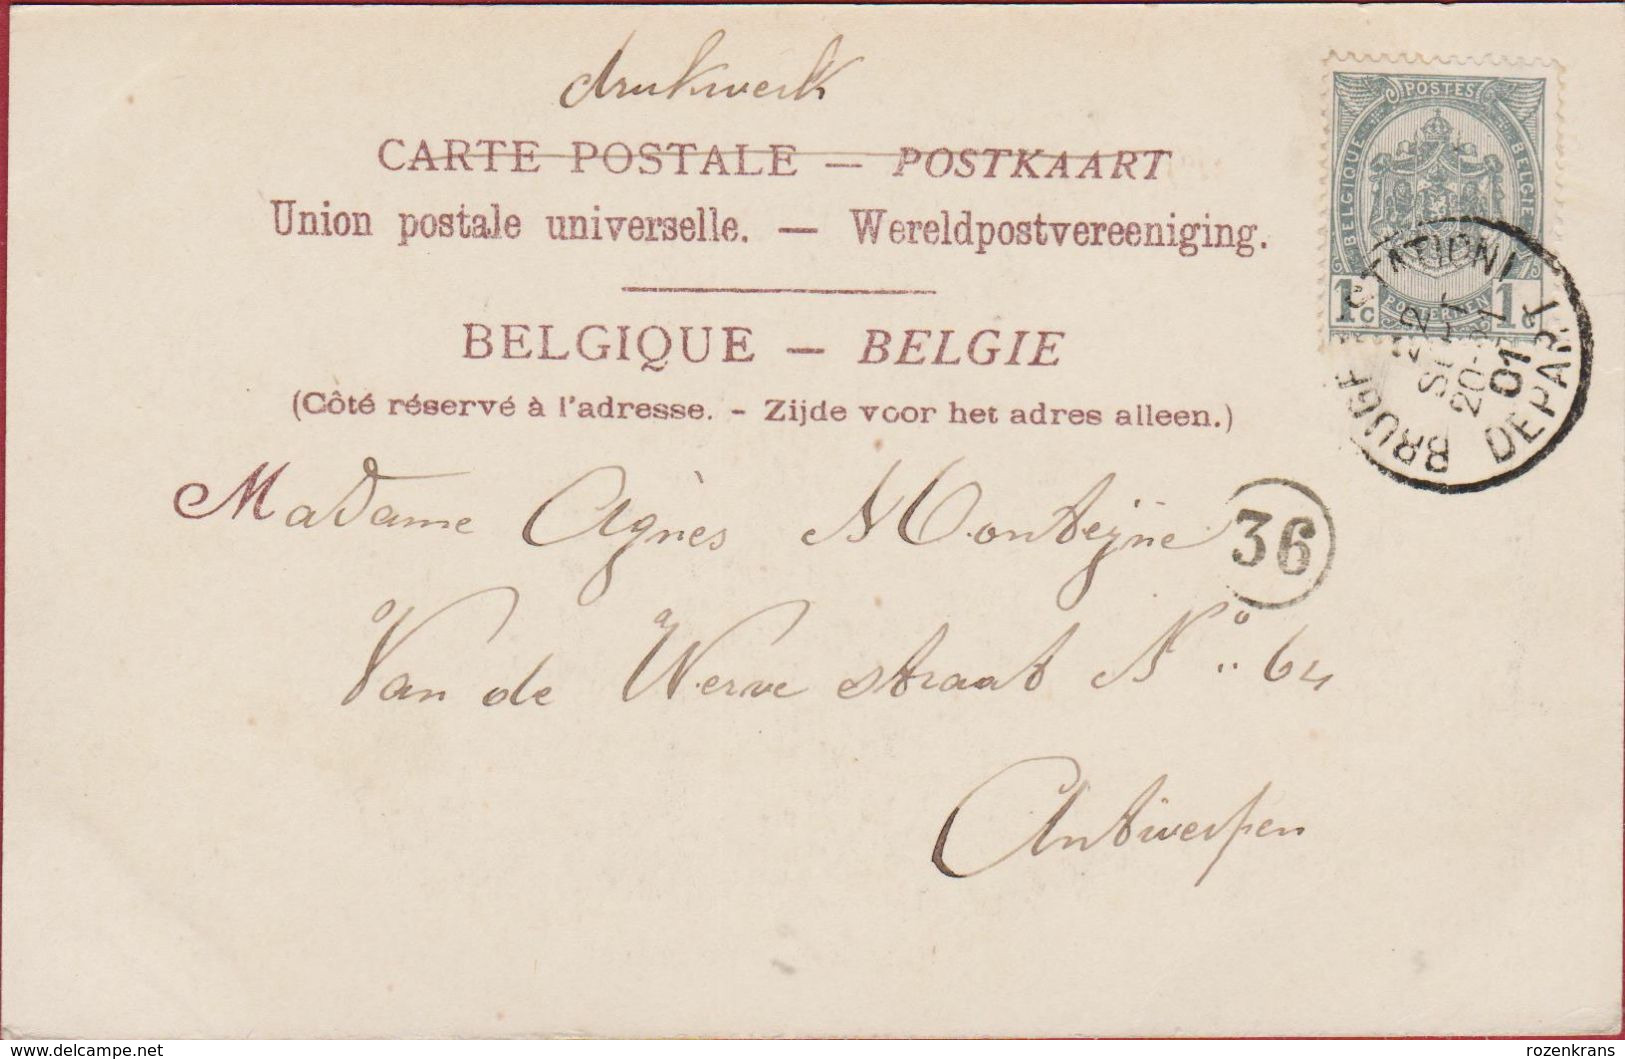 drukwerk
CARTE POSTALE — POSTKAART
Union postale universelle. — Wereldpostvereeniging.
BELGIQUE — BELGIE
(Côté réservé à l'adresse. - Zijde voor het adres alleen.)
POSTES
BELGIQUE BELGIE
1c POSTERIJEN 1c
BRUGES (STATION)
22
SEPT
20-21
01
DEPART
36
Madame Agnès Monteyne
Van de Werve straat No 64
Antwerpen
delcampe.net
rozenkrans